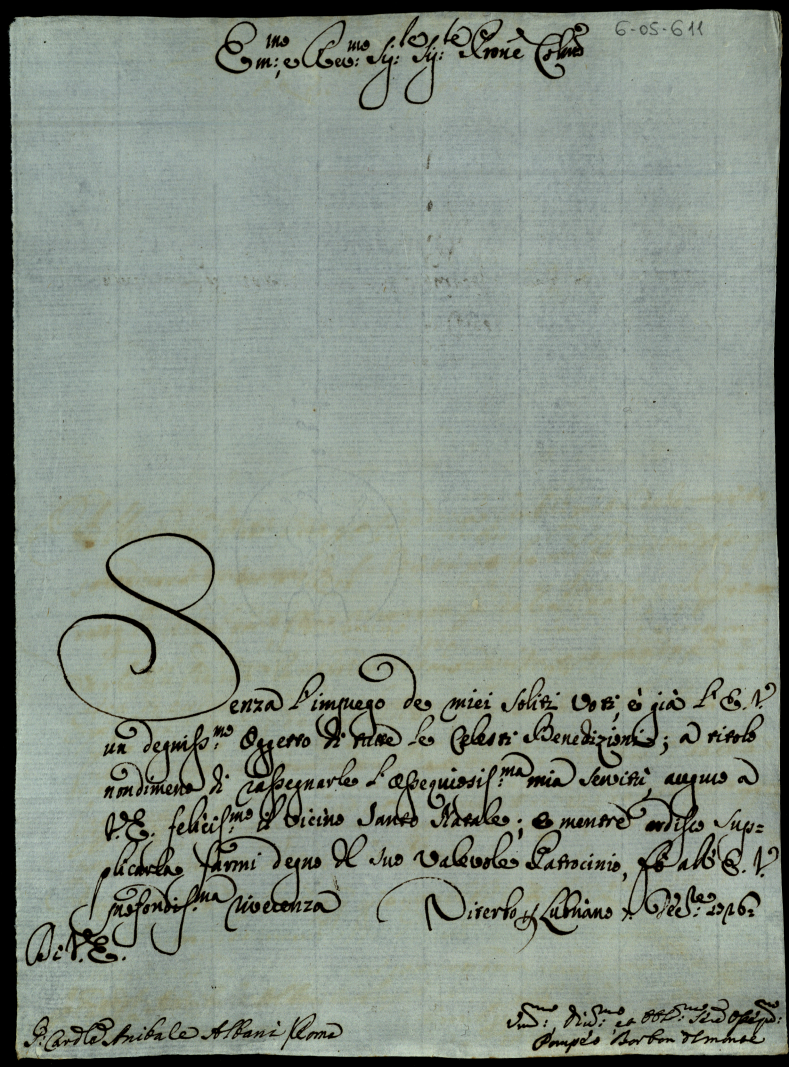 6-05-611
Em:mo e Rev:mo Sig:re Sig:re Prone Colmo
Senza l'impiego de miei soliti Voti, è già l'E. V.
un degniss:mo Oggetto di tutte le Celesti Benedizioni; a titolo
nondimeno di rassegnarle l'ossequiosis:ma mia servitù, auguro a
V. E. felicis:mo il vicino Santo Natale; e mentre ardisco sup=
plicarla farmi degno del suo valevole Patrocinio, fò all'E. V.
profondis:ma riverenza Viterbo Lubriano Xbre
Di V. E.
Sr Cardle Anibale Albani Roma
Um:mo Div:mo et Obb:mo
Pompeo Borbon del monte